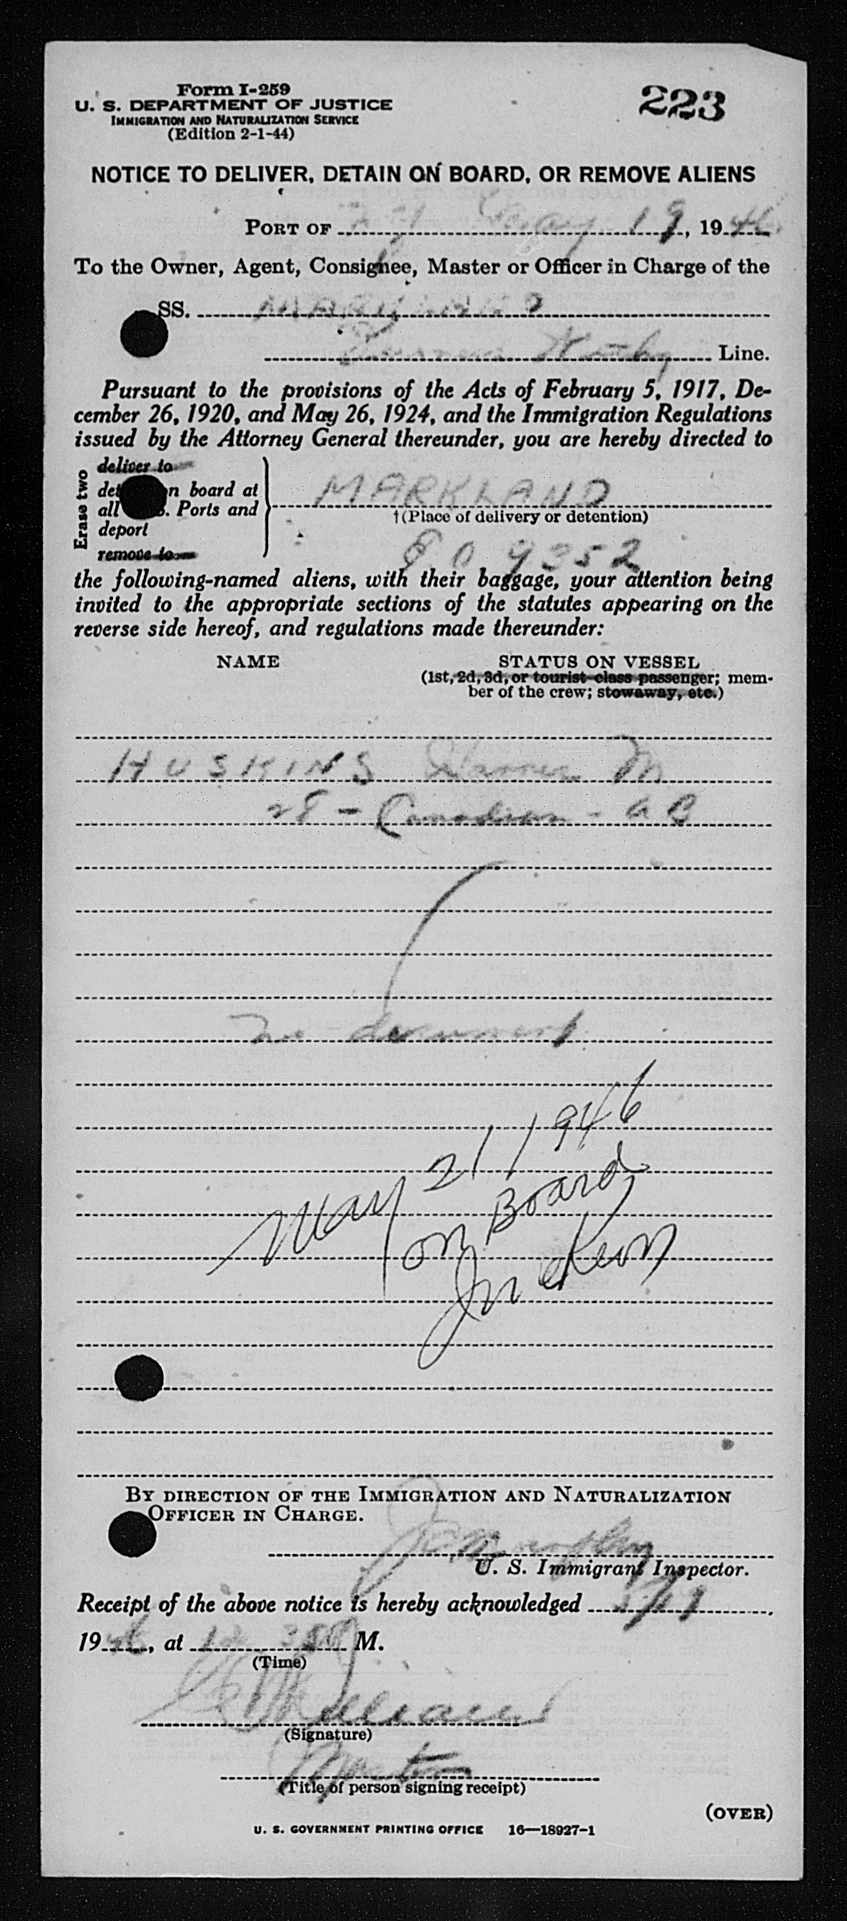 Form I-259
U. S. DEPARTMENT OF JUSTICE
IMMIGRATION AND NATURALIZATION SERVICE
(Edition 2-1-44)
223
NOTICE TO DELIVER, DETAIN ON BOARD, OR REMOVE ALIENS
PORT OF May 19, 1946
To the Owner, Agent, Consignee, Master or Officer in Charge of the
SS. MARKLAND
Line.
Pursuant to the provisions of the Acts of February 5, 1917, De-
cember 26, 1920, and May 26, 1924, and the Immigration Regulations
issued by the Attorney General thereunder, you are hereby directed to
Erase two
deliver to
on board at
all Ports and
deport
remove to
MARKLAND
†(Place of delivery or detention)
809352
the following-named aliens, with their baggage, your attention being
invited to the appropriate sections of the statutes appearing on the
reverse side hereof, and regulations made thereunder:
NAME STATUS ON VESSEL
(1st, 2d, 3d, or tourist-class passenger; mem-
ber of the crew; stowaway, etc.)
HUSKINS Warner M
28 - Canadian - AB
no document
May 21 1946
on Board
BY DIRECTION OF THE IMMIGRATION AND NATURALIZATION
OFFICER IN CHARGE.
U. S. Immigrant Inspector.
Receipt of the above notice is hereby acknowledged 5/19,
1946, at 12 30 M.
(Time)
(Signature)
Master
(Title of person signing receipt)
(OVER)
U. S. GOVERNMENT PRINTING OFFICE 16—18927-1